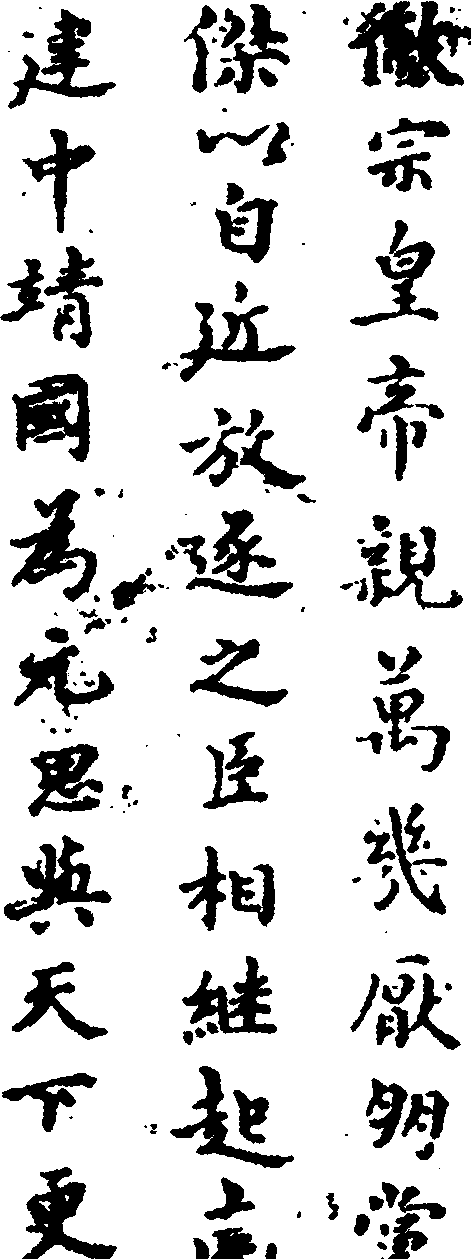 徽宗皇帝親萬幾厭朋黨
傑以自近放逐之臣相繼起
建中靖國為元思與天下更